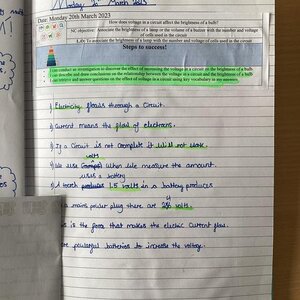 Monday 20th March 2023
Date: Monday 20th March 2023
How does voltage in a circuit affect the brightness of a bulb?
NC objective: Associate the brightness of a lamp or the volume of a buzzer with the number and voltage of cells used in the circuit
LO: To associate the brightness of a lamp with the number and voltage of cells used in the circuit
Steps to success!
I can conduct an investigation to discover the effect of increasing the voltage in a circuit on the brightness of a bulb.
I can describe and draw conclusions on the relationship between the voltage in a circuit and the brightness of a bulb
I can retrieve and answer questions on the effect of voltage in a circuit using key vocabulary in my answers.
Electricity flows through a circuit.
Current means the flow of electrons.
If a circuit is not complete it will not work.
volts
We use when we measure the amount.
uses a battery
A torch produces 1.5 volts in a battery produces
a mains power plug there are volts.
is the force that makes the electric current flow.
more powerful batteries to increase the voltage.